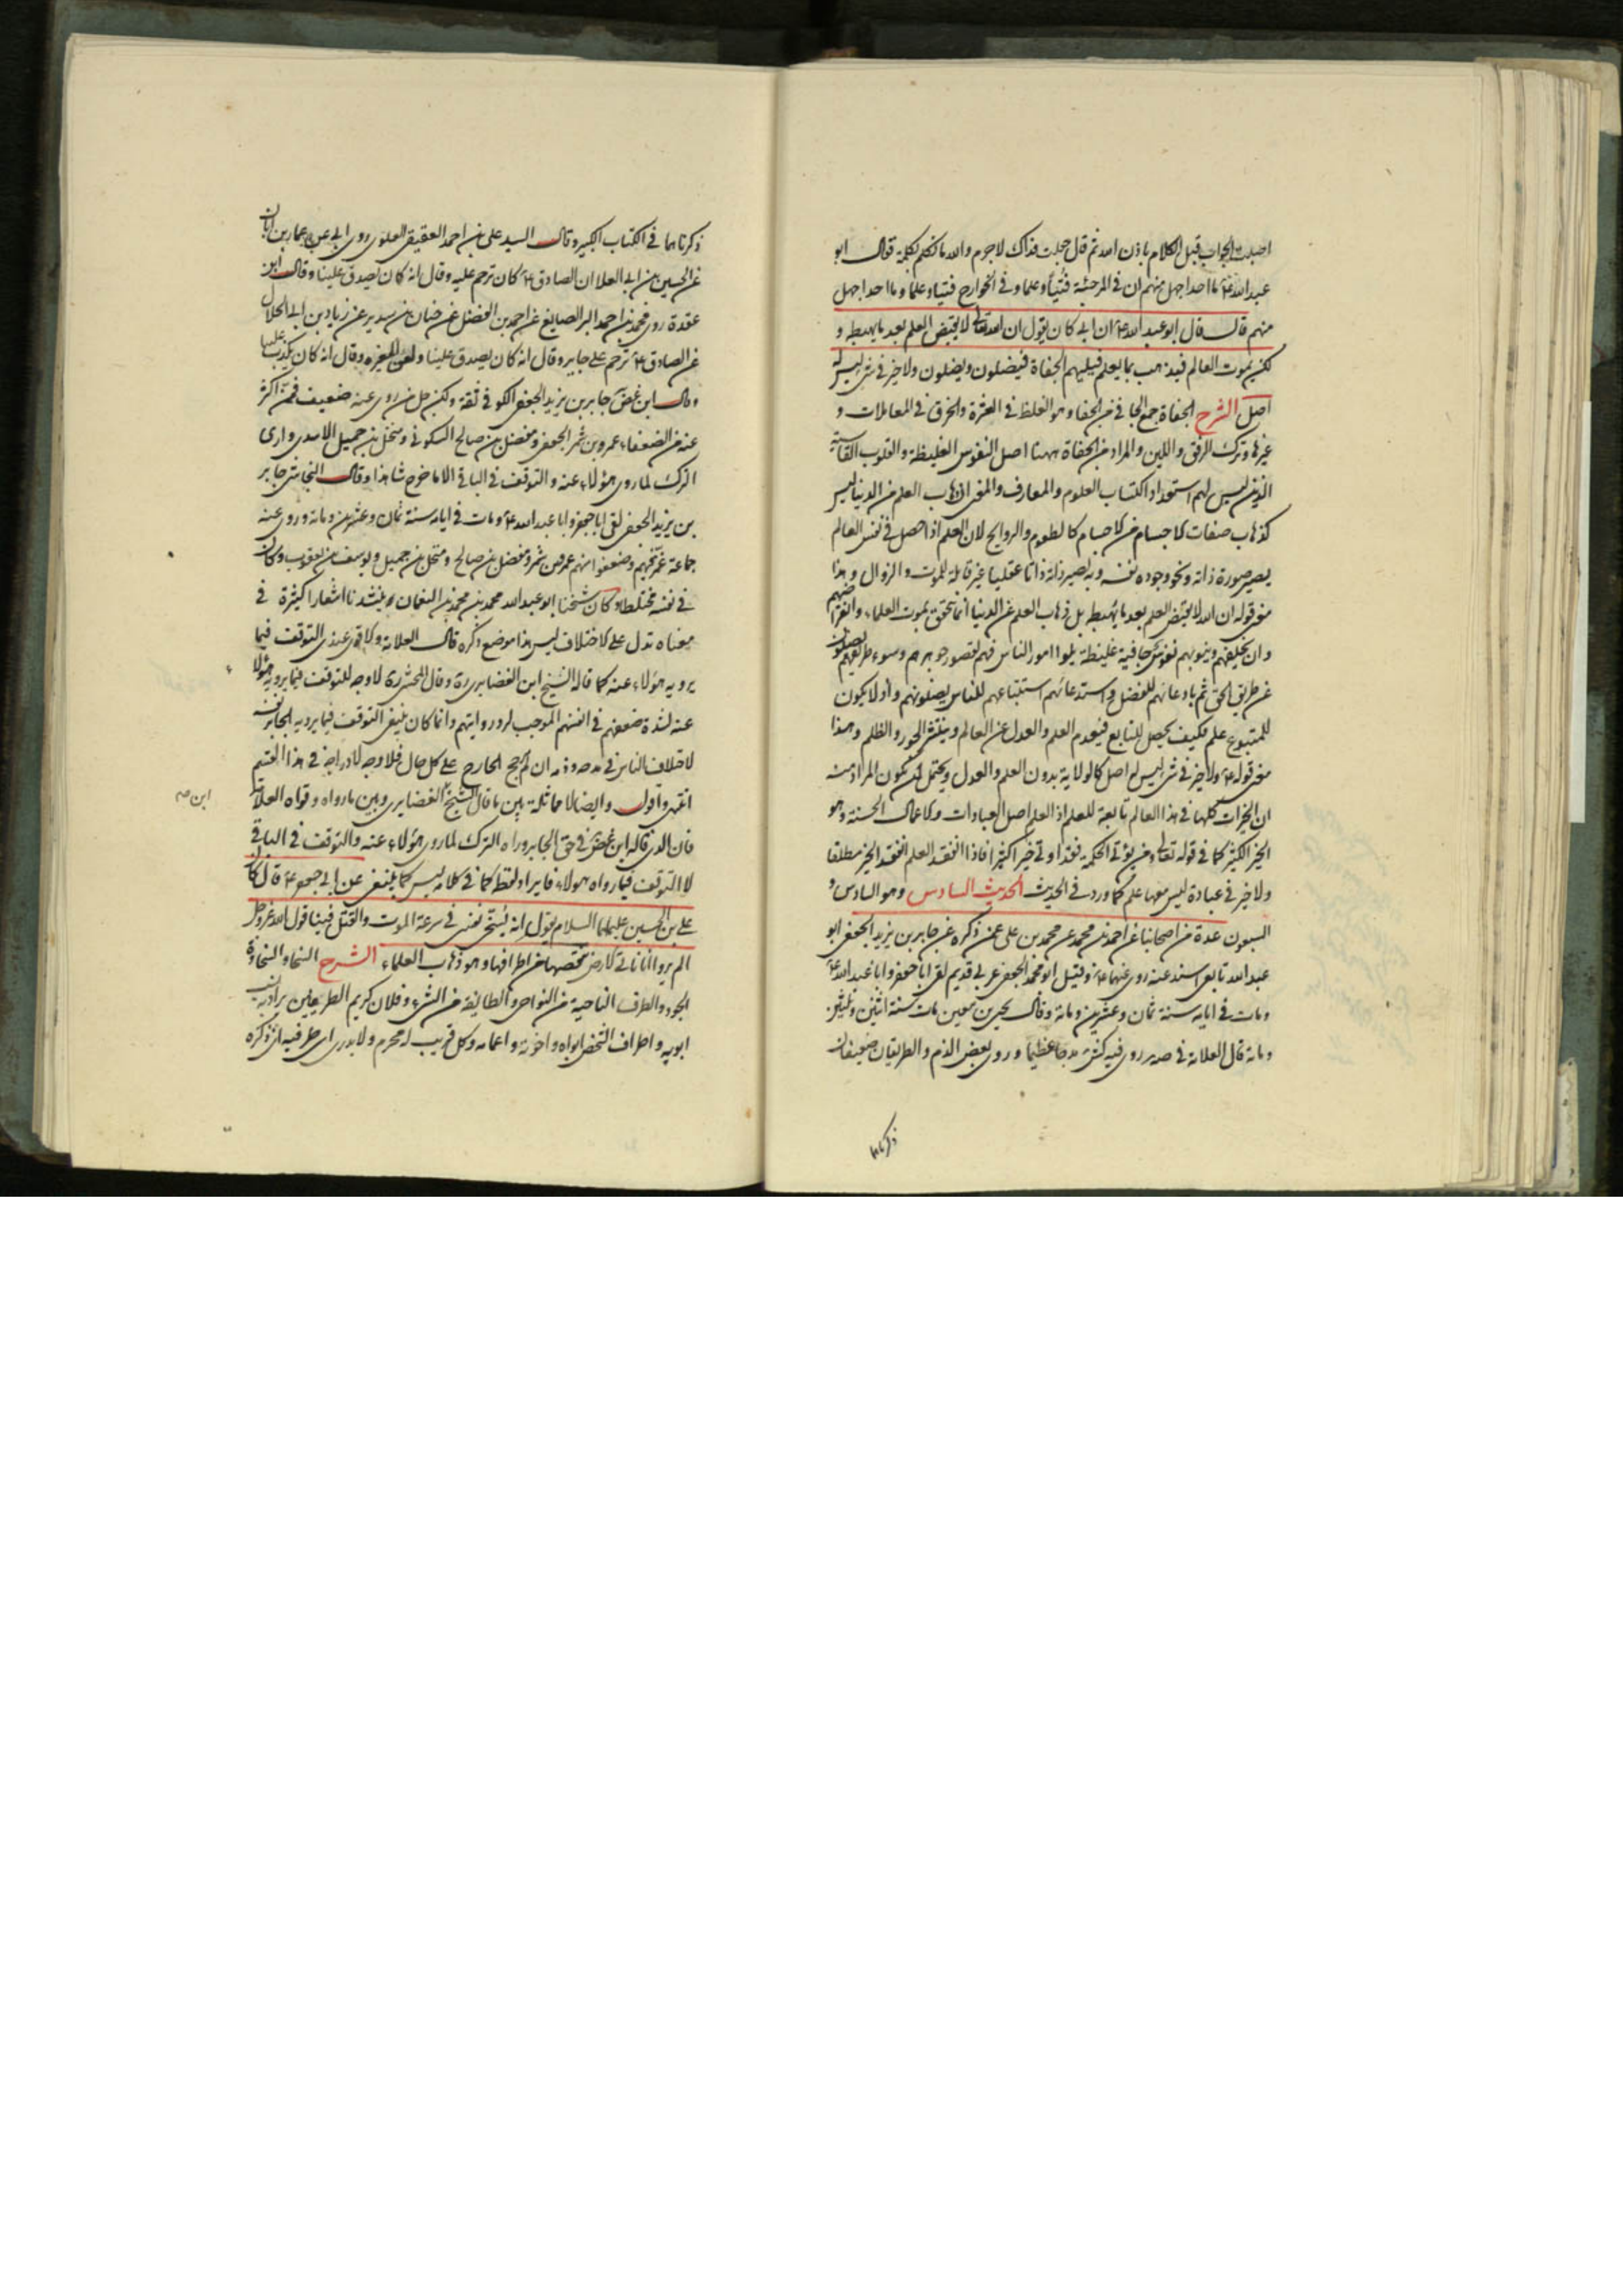 اصبت الجواب قبل الكلام باذن الله ثم قل جعلت فداك لا جرم والله ما تكلم بكلمة فقال ابو
عبد الله ع ما احد اجهل منهم ان في المرجئة فتيا وعلما وفي الخوارج فتيا وعلما وما احد اجهل
منهم قال قال ابو عبد الله ع ان ابي كان يقول ان الله تعالى لا يقبض العلم بعد ما يهبطه و
لكن يموت العالم فيذهب بما يعلم فيليهم الجفاة فيضلون ويضلون ولا خير في شئ ليس له
اصل الشرح الجفاة جمع الجافي من الجفا وهو الغلظ في العشرة والخرق في المعاملات و
غيرها وترك الرفق واللين والمراد من الجفاة ههنا اصل النفوس الغليظة والقلوب القاسية
الذين ليس لهم استعداد اكتساب العلوم والمعارف والمعنى ان ذهاب العلم من الدنيا ليس
كذهاب صفات الاجسام من الاجسام كالطعوم والروايح لان العلم اذا حصل في نفس العالم
يصير صورة ذاته ونحو وجوده نفسه وبه تصير ذاته ذاتا عقليا غير قابلة للموت والزوال وهذا
معنى قوله ان الله لا يقبض العلم بعد ما يهبطه بل ذهاب العلم من الدنيا انما يتحقق بموت العلماء وانقراضهم
وان يخلفهم وينوبهم نفوس جافية غليظة يلوا امور الناس فهم لقصور جوهرهم وسوء طريقهم يضلون
عن طريق الحق ثم بادعائهم للفضل واستدعائهم استتباعهم للناس يضلونهم واذ لا يكون
للمتبوع علم فكيف يحصل للتابع فينعدم العلم والعدل عن العالم وينتشر الجور والظلم وهذا
معنى قوله ع ولا خير في شئ ليس له اصل كالولاية بدون العلم والعدل ويحتمل ان يكون المراد منه
ان الخيرات كلها في هذا العالم تابعة للعلم اذ العلم اصل العبادات والاعمال الحسنة وهو
الخير الكثير كما في قوله تعالى ومن يؤتى الحكمة فقد اوتي خيرا كثيرا فاذا انفقد العلم انفقد الخير مطلقا
ولا خير في عبادة ليس معها علم كما ورد في الحديث الحديث السادس وهو السادس و
السبعون عدة من اصحابنا عن احمد بن محمد عن محمد بن علي عمن ذكره عن جابر بن يزيد الجعفي ابو
عبد الله تابعي اسند عنه روى عنهما ع وقيل ابو محمد الجعفي عربي قديم لقى ابا جعفر وابا عبد الله ع
ومات في ايامه سنة ثمان وعشرين ومائة وقال يحيى بن معين مات سنة اثنين وثلثين
ومائة قال العلامة في صه روى فيه كش مدحا عظيما وروى بعض الذم والطريقان ضعيفان
ذكرناهما
ذكرناهما في الكتاب الكبير وقال السيد علي بن احمد العقيقي العلوي روى ابي عن عمار بن ابان
عن الحسين بن ابي العلا ان الصادق ع كان ترحم عليه وقال انه كان يصدق علينا وقال ابن
عقدة روى محمد بن احمد البر الصايغ عن احمد بن الفضل عن حنان بن سدير عن زياد بن ابي الحلال
عن الصادق ع ترحم على جابر وقال انه كان يصدق علينا ولعن المغيرة وقال انه كان يكذب علينا
وقال ابن غض جابر بن يزيد الجعفي الكوفي ثقة ولكن جل من روى عنه ضعيف فمن اكثر
عنه من الضعفاء عمرو بن شمر الجعفي ومفضل بن صالح السكوني ومنخل بن جميل الاسدي وارى
الترك لما روى هؤلاء عنه والتوقف في الباقي الا ما خرج شاهدا وقال النجاشي جابر
بن يزيد الجعفي لقى ابا جعفر وابا عبد الله ع ومات في ايامه سنة ثمان وعشرين ومائة وروى عنه
جماعة غمز فيهم وضعفوا منهم عمرو بن شمر ومفضل بن صالح ومنخل بن جميل ويوسف بن يعقوب وكان
في نفسه مختلطا وكان شيخنا ابو عبد الله محمد بن محمد بن النعمان ينشدنا اشعارا كثيرة في
معناه تدل على الاختلاف ليس هذا موضع ذكره قال العلامة والاقوى عندي التوقف فيما
يرويه هؤلاء عنه كما قاله الشيخ ابن الغضايري ره وقال المحشي ره لا وجه للتوقف فيما يرويه هؤلاء
عنه لشدة ضعفهم في انفسهم الموجب لرد روايتهم وانما كان ينبغي التوقف فيما يرويه الجابر نفسه
لاختلاف الناس في مدحه وذمه ان لم يرجح الجارح على كل حال فلا وجه لادراجه في هذا القسم
انتهى واقول وايضا لا مماثلة بين ما قال الشيخ الغضايري وبين ما رواه وقواه العلامة
ابن صح
فان الذي قاله ابن غض في حق الجابر وراه الترك لما روى هؤلاء عنه والتوقف في الباقي
لا التوقف فيما رواه هؤلاء فايراد لفظ كما في كلامه ليس كما ينبغي عن ابي جعفر ع قال كان
علي بن الحسين عليهما السلام يقول انه يسخي نفسي في سرعة الموت والقتل فينا قول الله عز وجل
الم يروا انا ناتي الارض ننقصها من اطرافها وهو ذهاب العلماء الشرح السخا والسخاوة
الجود والطرف الناحية من النواحي والطايفة من الشئ وفلان كريم الطرفين يراد به نسب
ابويه واطراف الشخص ابواه واخوته واعمامه وكل قريب له محرم ولا يدرى اي طرفيه اي ذكره